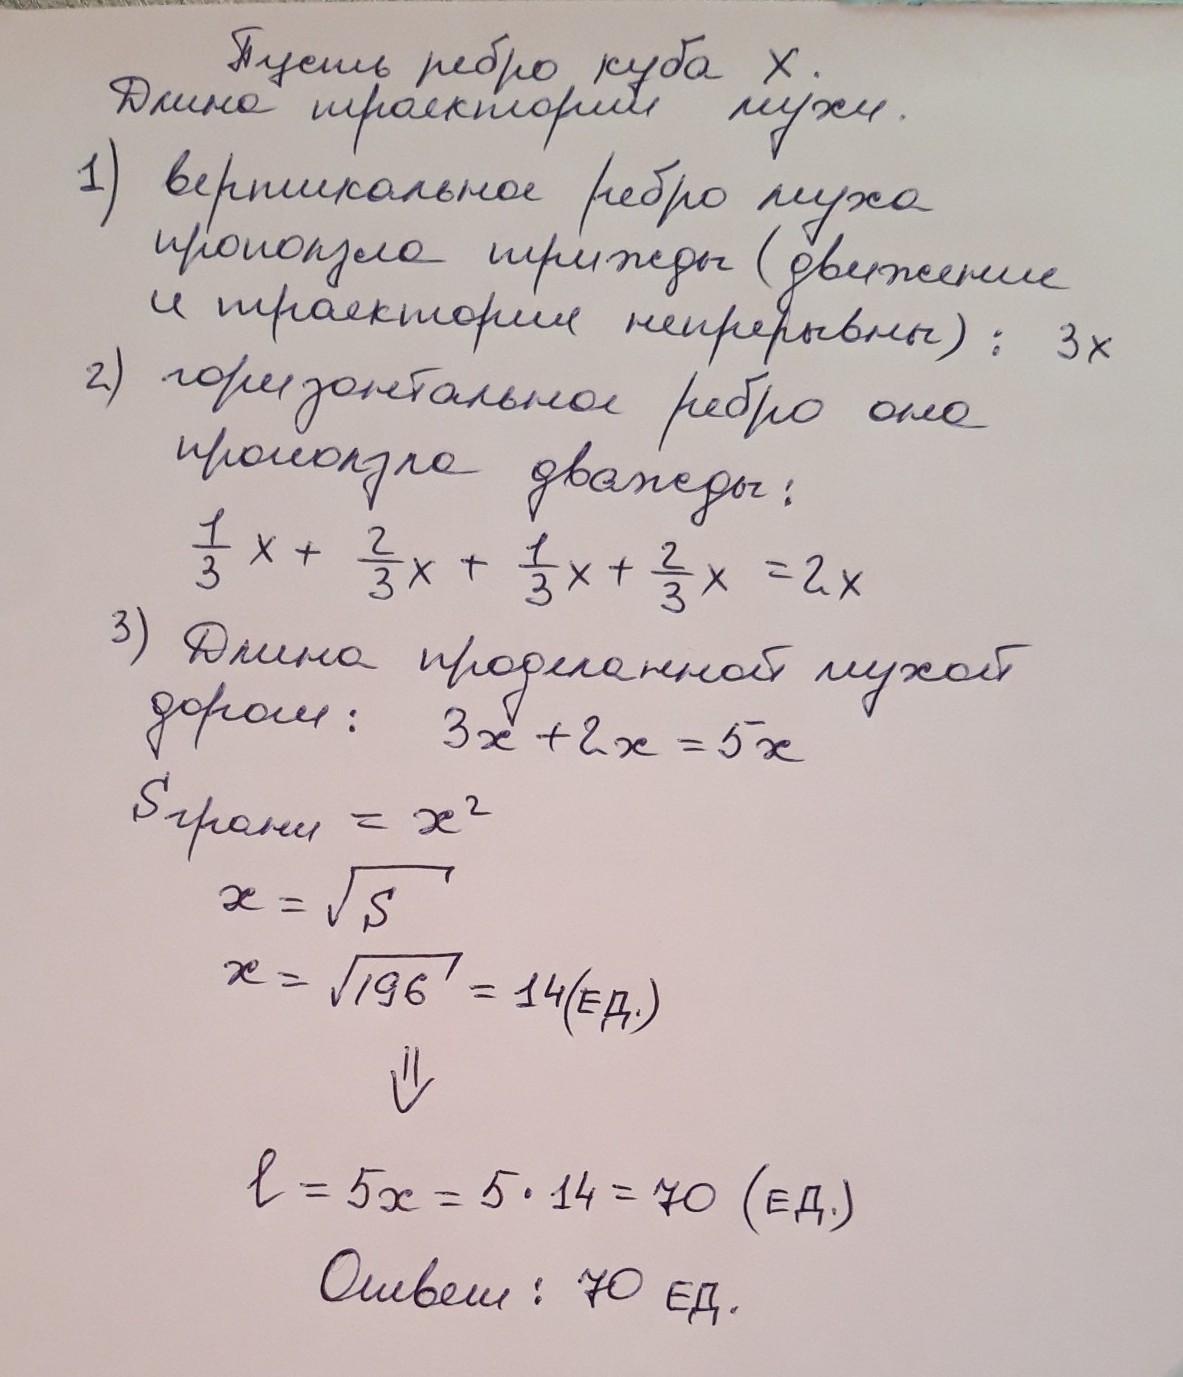 Пусть ребро куба x.
Длина траектории мухи.
1) вертикальное ребро муха
проползла трижды (движение
и траектория непрерывны): 3x
2) горизонтальное ребро она
проползла дважды:
1/3 x + 2/3 x + 1/3 x + 2/3 x = 2x
3) Длина проделанной мухой
дороги: 3x + 2x = 5x
S грани = x²
x = √S
x = √196 = 14 (ЕД.)
⇓
l = 5x = 5 · 14 = 70 (ЕД.)
Ответ: 70 ЕД.